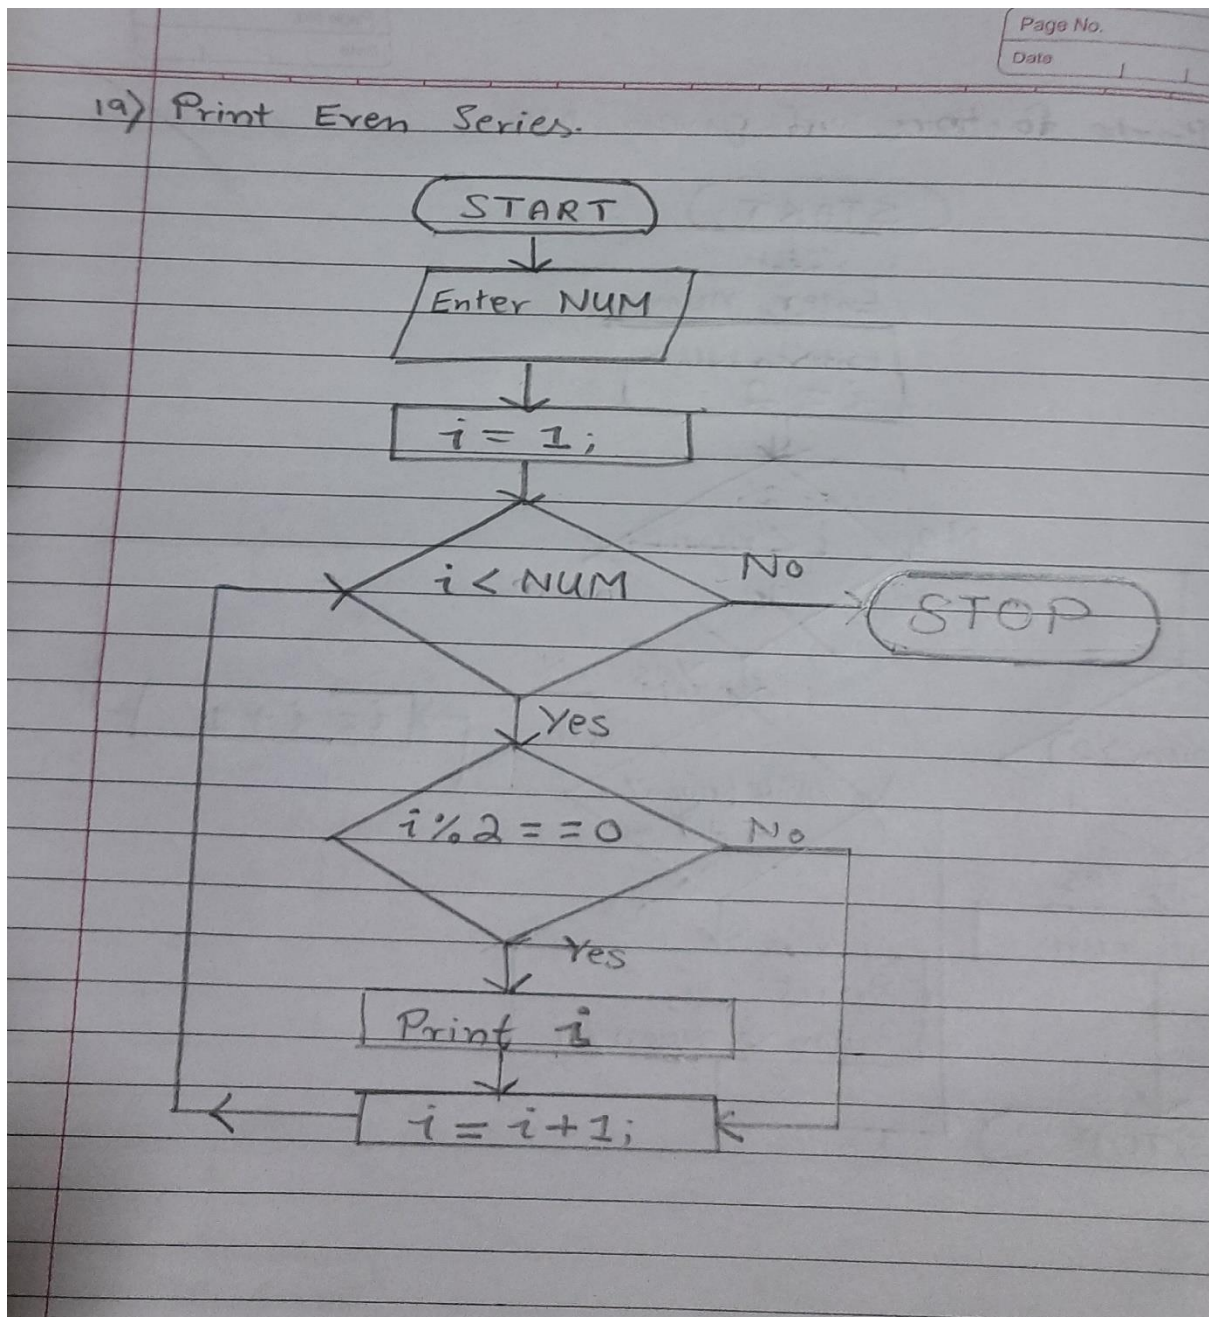 Page No.
Date
19) Print Even Series.
START
Enter NUM
i = 1;
i < NUM
No
STOP
Yes
i % 2 = = 0
No
Yes
Print i
i = i + 1;